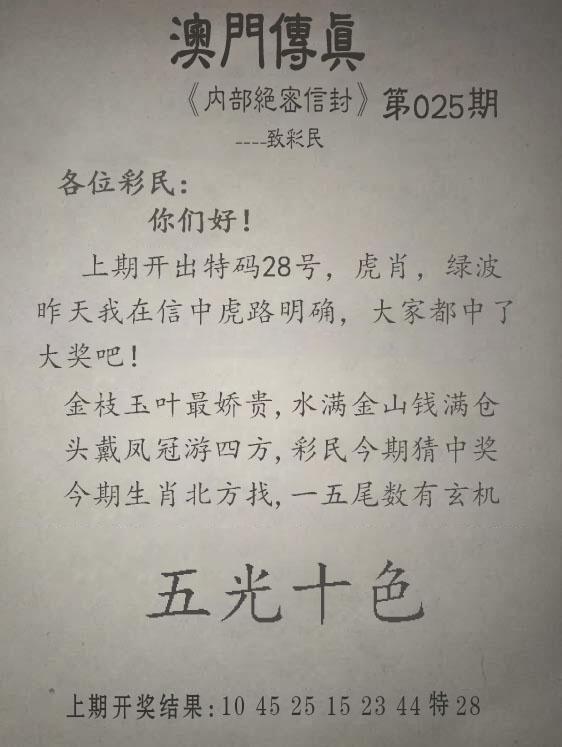 澳門傳眞
《内部絕密信封》第025期
----致彩民
各位彩民：
你们好！
上期开出特码28号，虎肖，绿波
昨天我在信中虎路明确，大家都中了
大奖吧！
金枝玉叶最娇贵,水满金山钱满仓
头戴凤冠游四方,彩民今期猜中奖
今期生肖北方找,一五尾数有玄机
五光十色
上期开奖结果:10 45 25 15 23 44 特 28